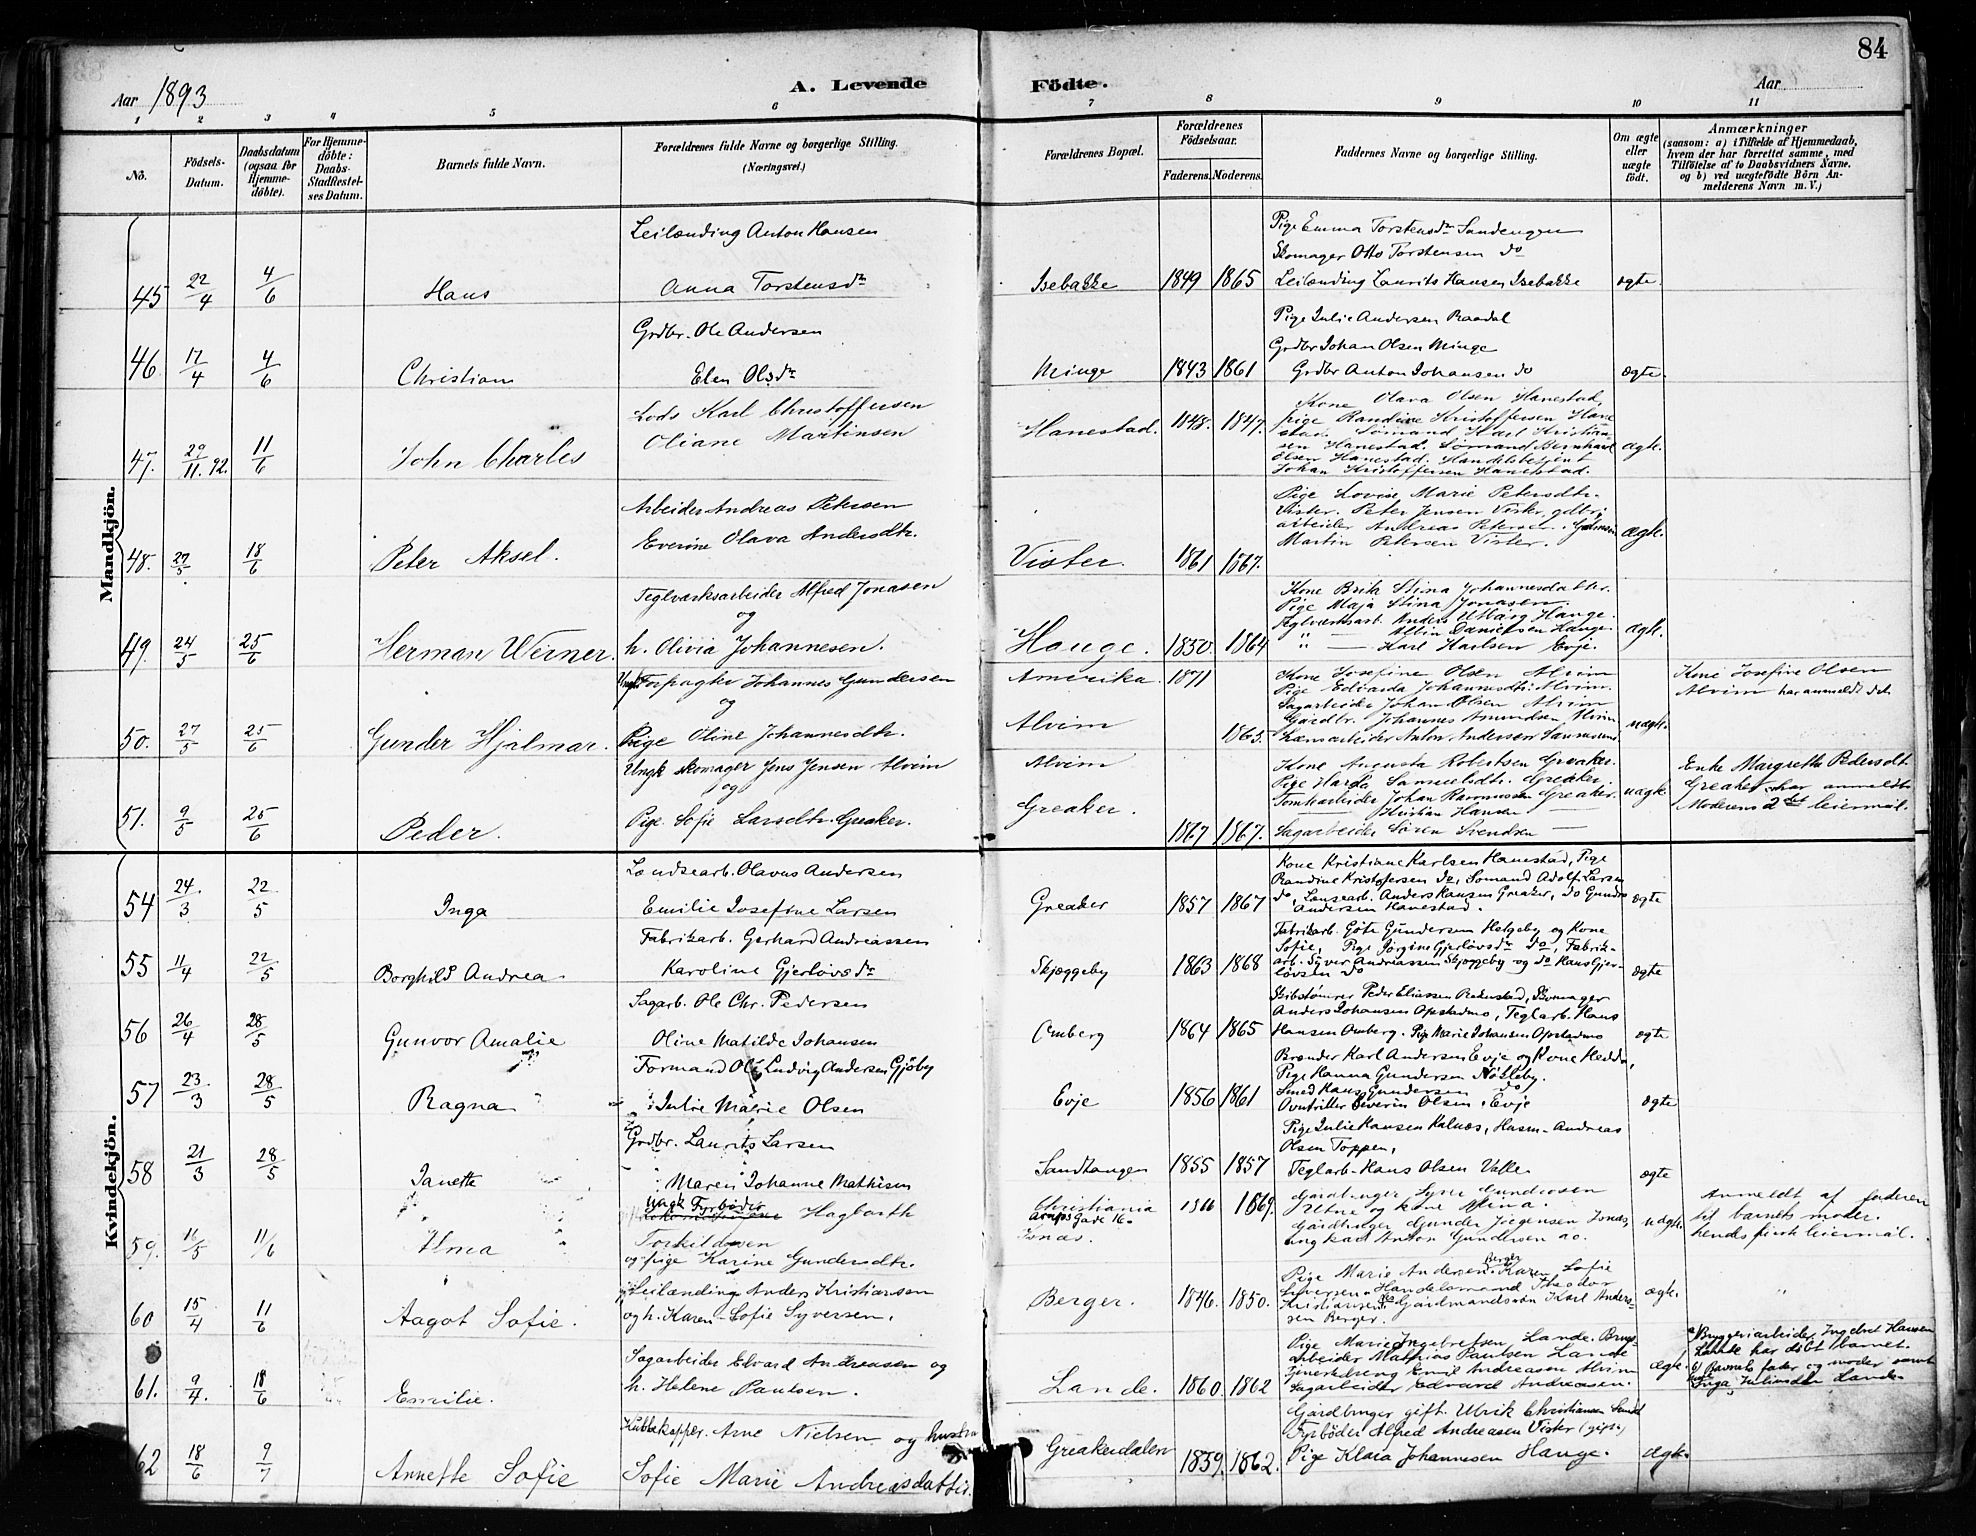 84
Aar 1893
A. Levende Födte.
Aar
1 2 3 4 5 6 7 8 9 10 11
No.
Födsels-Datum.
Daabsdatum (ogsaa for Hjemme-döbte).
For Hjemme-döbte: Daabs-Stadfæstel-ses Datum.
Barnets fulde Navn.
Forældrenes fulde Navne og borgerlige Stilling. (Næringsvei.)
Forældrenes Bopæl.
Forældrenes Födselsaar.
Faderens. Moderens.
Faddernes Navne og borgerlige Stilling.
Om ægte eller uægte födt.
Anmærkninger
(saasom: a) i Tilfælde af Hjemmedaab, hvem der har forrettet samme, med Tilföielse af to Daabsvidners Navne. og b) ved uægtefödte Börn Anmelderens Navn m. V.)
Mandkjön.
45 22/4 4/6 Hans
Leilænding Anton Hansen
Anna Torstensdr
Isebakke 1849 1865
Pige Emma Torstensdr Sandengen
Skomager Otto Torstensen do
Leilænding Laurits Hansen Isebakke
ægte
46 17/4 4/6 Christian
Grdbr. Ole Andersen
Elen Olsdr
Minge 1843 1861
Pige Julie Andersen Raadal
Grdbr Johan Olsen Minge
Grdbr Anton Johansen do
ægte.
47. 29/11.92. 11/6 John Charles
Lods Karl Christoffersen
Oliane Martinsen
Hanestad. 1848. 1847.
Kone Olava Olsen Hanestad,
pige Randine Kristoffersen Hane
stad. Sømand Karl Kristian
sen Hanestad. Sømand Bernhard
Olsen Hanestad. Handelsbetjent
Johan Kristoffersen Hanestad.
ægte.
48. 27/5 18/6 Peter Aksel.
Arbeider Andreas Petersen
Everine Olava Andersdtr.
Vister. 1861 1867.
Pige Lovise Marie Petersdtr.
Vister. Peter Jensen Vister,
arbeider Andreas Petersen.
Martin Petersen Vister.
ægte.
49. 24/5 25/6 Herman Werner.
Teglværksarbeider Alfred Jonasen
og
h. Olivia Johannesen.
Hauge. 1850. 1864
Kone Brita Stina Johannesdatter.
Pige Maja Stina Jonasen.
Teglværksarb. Anders Hauge.
" — Albin Danielsen Hauge.
" — Karl Karlsen Evje.
ægte.
50. 27/5 25/6 Gunder Hjalmar.
Ungk. Forpagter Johannes Gundersen
og
Pige Oline Johannesdtr.
Amerika. 1871
Alvim 1863.
Kone Josefine Olsen Alvim
Pige Edvarda Johannesdtr. Alvim.
Sagarbeider Johan Olsen Alvim
Gårdbr. Johannes Amundsen Alvim
Lænsarbeider Anton Andersen
uægte.
Kone Josefine Olsen
Alvim har anmeldt det
51. 9/5 25/6 Peder.
Ungk skomager Jens Jensen Alvim
og
Pige Sofie Larsdtr. Greaker.
Alvim
Greaker.
1867 1867.
Kone Augusta Robertsen Greaker.
Pige Harda Samuelsdtr. Greaker.
Tomtearbeider Johan Rasmussen Greaker.
— Kristian Hansen
Sagarbeider Søren Svendsen —
uægte
Enke Margrethe Pedersdtr.
Greaker har anmeldt
Moderens 2det leiermål.
Kvindekjön.
54 24/3 22/5 Inga
Landsearb. Olavus Andersen
Emilie Josefine Larsen
Greaker 1857 1867
Kone Kristiane Karlsen Hanestad, Pige
Randine Kristofersen do, Sømand Adolf Larsen
do, Lansearb. Anders Hansen Greaker, do Gunder
Andersen Hanestad.
ægte
55 11/4 22/5 Borghild Andrea
Fabrikarb. Gerhard Andreassen
Karoline Gjerløvsdr
Skjøggeby 1863 1868
Fabrikarb. Göte Gundersen Helgeby og Kone
Sofie, Pige Jørgine Gjerløvsdr do, Fabrik-
arb. Syver Andreassen Skjøggeby og do Hans Gjer-
løvsen do
ægte
56 26/4 28/5 Gunvor Amalie
Sagarb. Ole Chr. Pedersen
Oline Matilde Johansen
Omberg 1864 1865
Skibstømrer Peder Eliassen Rokenstad, Skomager
Anders Johansen Opstadmo, Teglarb. Hans
Hansen Omberg. Pige Marie Johansen Opstadmo
ægte
57 23/3 28/5 Ragna
Formand Ole Ludvig Andersen Gjøby
Julie Marie Olsen
Evje 1856 1861
Brænder Karl Andersen Evje og Kone Hedda,
Pige Hanna Gundersen Nøkleby.
Smed Hans Gundersen do
Severin Olsen, Evje
ægte
58 21/3 28/5 Janette
Grdbr. Laurits Larsen
Maren Johanne Mathisen
Sandtangen 1855 1857
Pige Julie Hansen Kalnæs, Husm. Andreas
Olsen Toppen,
Teglarb. Hans Olsen Valle
ægte
59. 16/5 11/6 Alma
Ungk Fyrbøder Hagbarth
Torkildsen
og pige Karine Gundersdtr.
Christiania
Gade 16.
Isnæs.
1866 1869.
Gårdbruger Gundersen
og kone Mina.
Gårdbruger Gunder Jörgensen Isnæs,
ungkarl Anton Gundersen do.
uægte.
Anmeldt af faderen
til barnets moder.
hendes første leiermål.
60 15/4 11/6 Aagot Sofie.
Leilænding Anders Kristiansen
og h. Karen Sofie Syversen.
Berger. 1846. 1850.
Pige Marie Andersen Berger, Karen Sofie
Syversen. Handelsmand Theodor
Kristiansen. Gårdmandssøn Karl Ander-
sen Berger.
ægte.
61. 9/4. 18/6 Emilie.
Sagarbeider Edvard Andreasen og
h. Helene Paulsen.
Lande. 1860. 1862
Pige Marie Ingebretsen Lande. Brug-
arbeider Mathias Paulsen Lande
Emil Andreasen Alvim
Sagarbeider Edvard Andreasen.
ægte.
a) Bryggeriarbeider Ingebret Hansen
Lande har döbt barnet.
b) Barnets fader og moder samt
Inga Lande.
62 18/6 9/7 Annette Sofie
Kubbekapper. Arne Nielsen og hustru
Sofie Marie Andreasdatter.
Greakerdalen 1839. 1862.
Gårdbruger gift. Ulrik Christiansen
Fyrbøder Alfred Andreasen Vister (gift.)
Pige Klara Johannesen Hauge.
ægte.